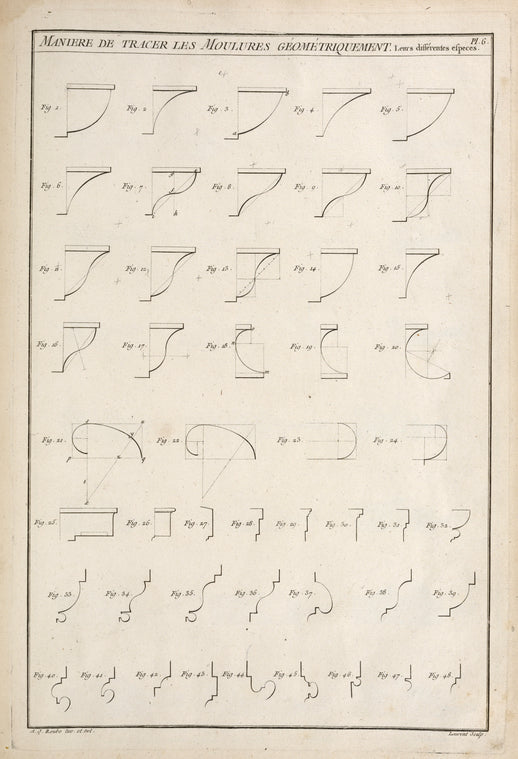 MANIERE DE TRACER LES MOULURES GÉOMÉTRIQUEMENT. Leurs différentes especes. Pl. 6.
Fig. 1. Fig. 2. Fig. 3. Fig. 4. Fig. 5.
Fig. 6. Fig. 7. Fig. 8. Fig. 9. Fig. 10.
Fig. 11. Fig. 12. Fig. 13. Fig. 14. Fig. 15.
Fig. 16. Fig. 17. Fig. 18. Fig. 19. Fig. 20.
Fig. 21. Fig. 22. Fig. 23. Fig. 24.
Fig. 25. Fig. 26. Fig. 27. Fig. 28. Fig. 29. Fig. 30. Fig. 31. Fig. 32.
Fig. 33. Fig. 34. Fig. 35. Fig. 36. Fig. 37. Fig. 38. Fig. 39.
Fig. 40. Fig. 41. Fig. 42. Fig. 43. Fig. 44. Fig. 45. Fig. 46. Fig. 47. Fig. 48.
A. J. Roubo Inv. et Del. Laurent Sculp.